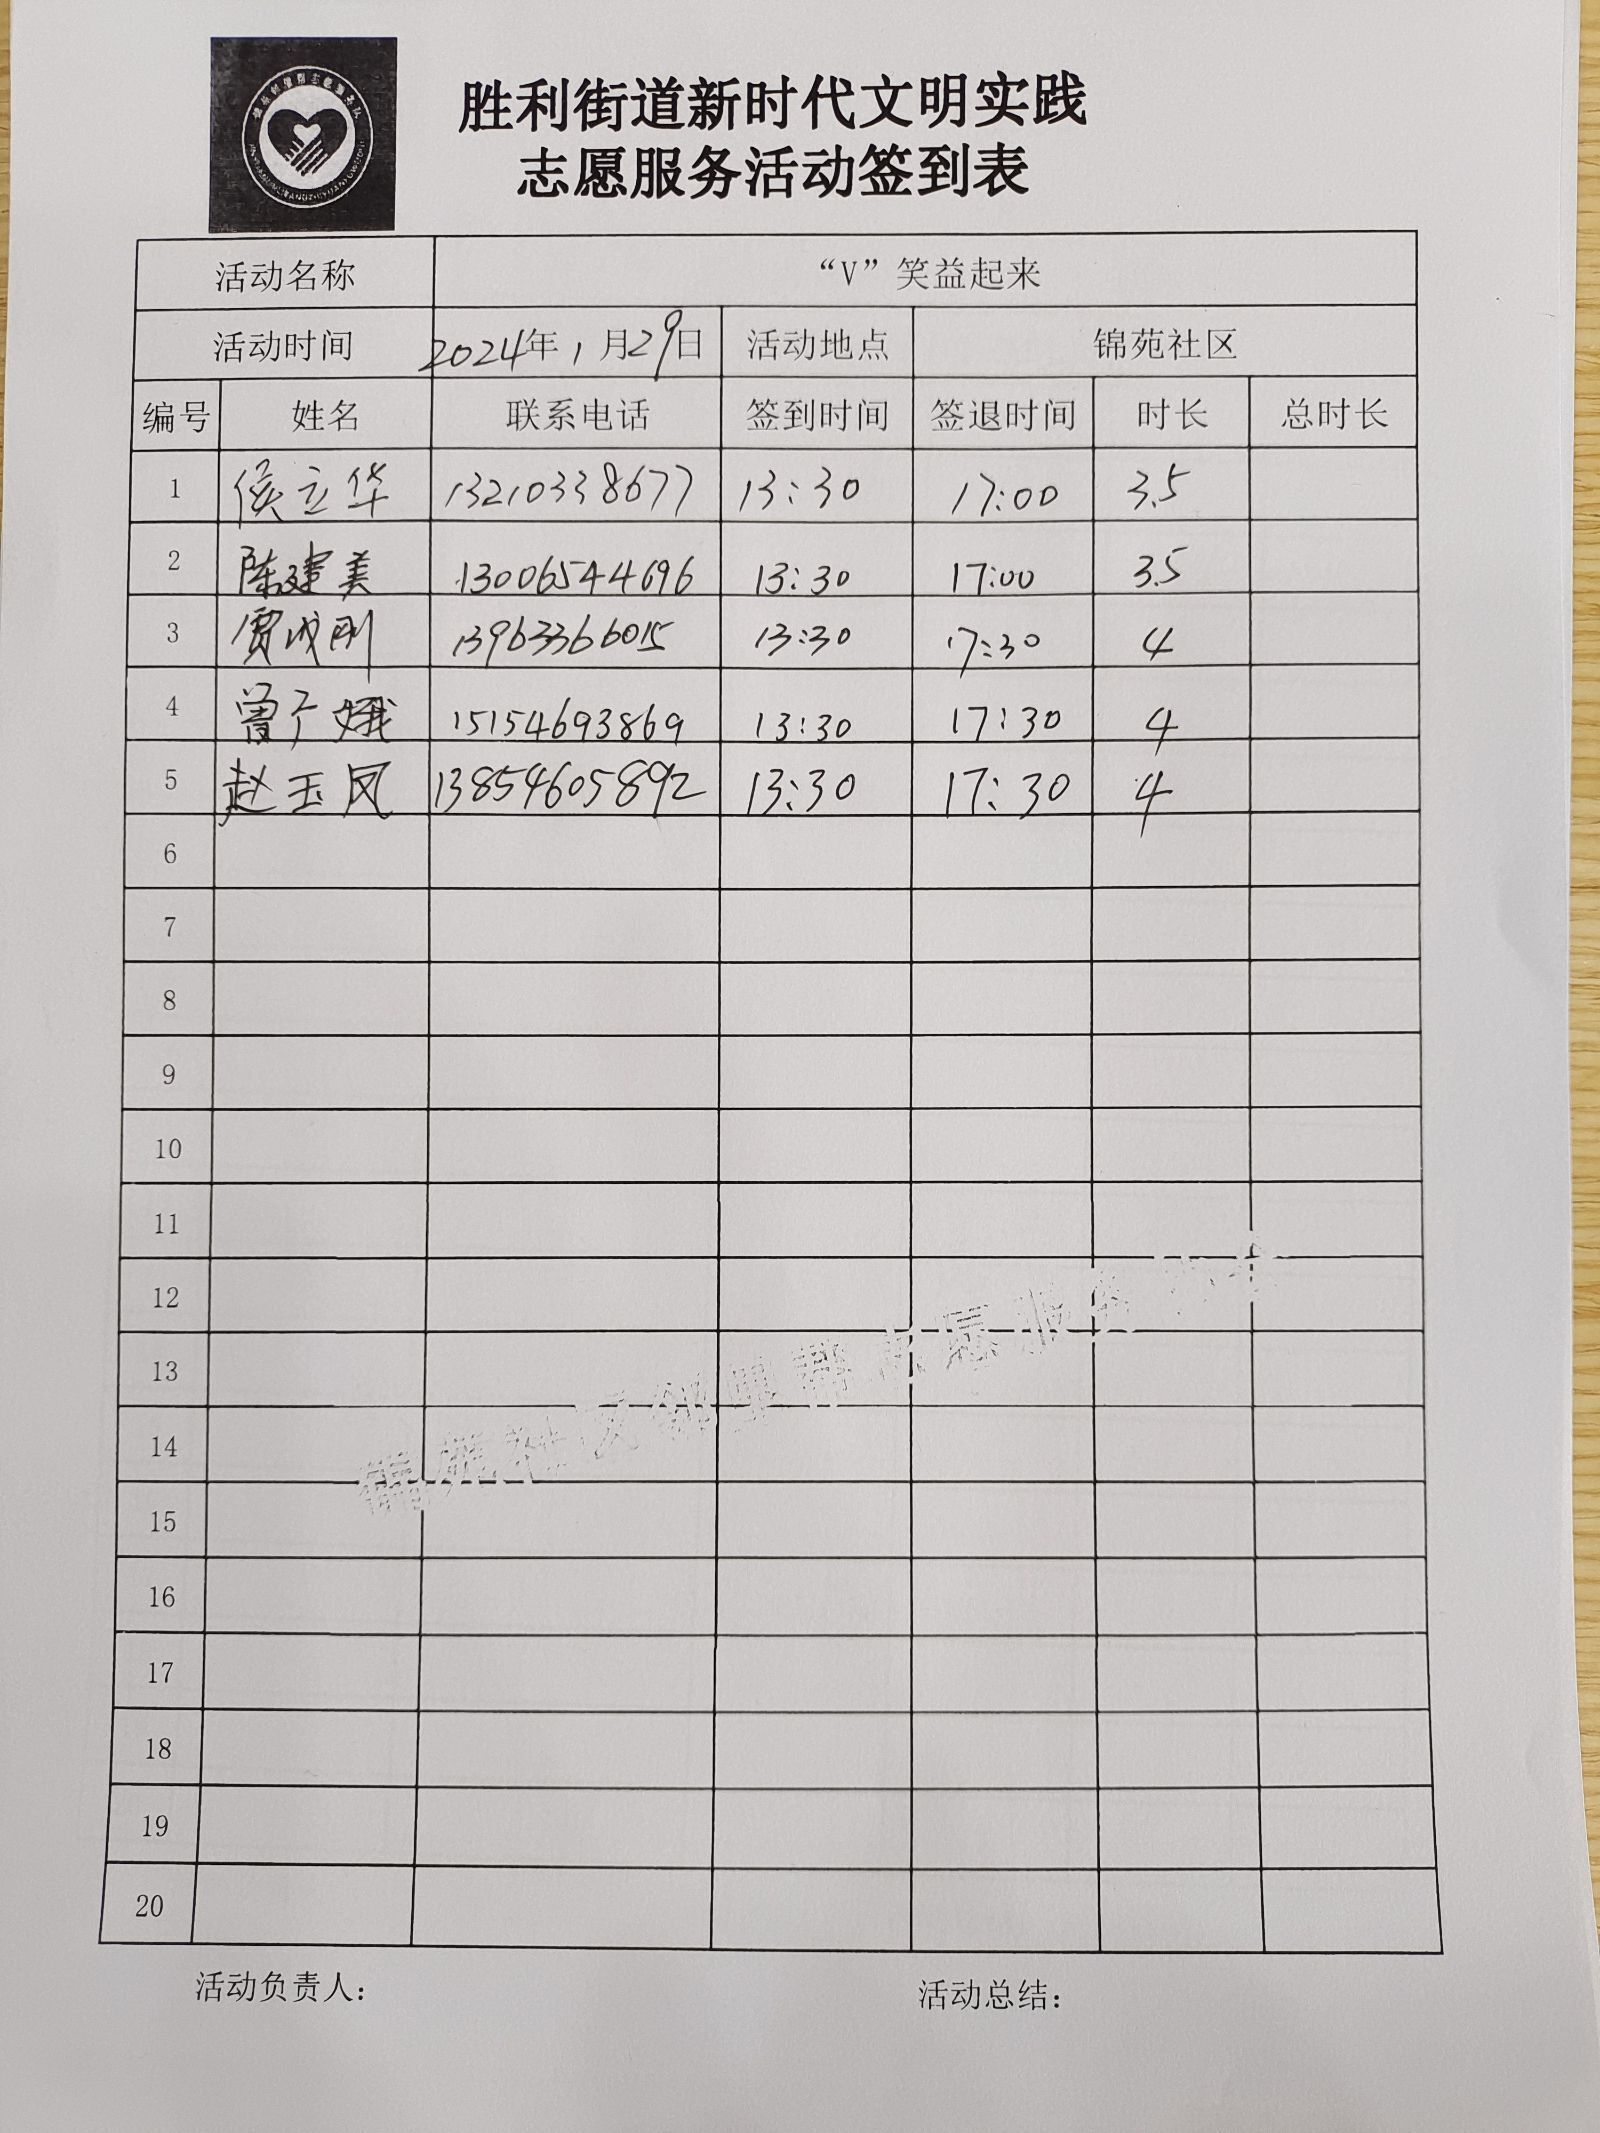 胜利街道新时代文明实践
志愿服务活动签到表
活动名称 “V”笑益起来
活动时间 2024年1月29日 活动地点 锦苑社区
编号 姓名 联系电话 签到时间 签退时间 时长 总时长
1 侯立华 13210338677 13:30 17:00 3.5
2 陈建美 13006544696 13:30 17:00 3.5
3 贾成刚 13963366015 13:30 17:30 4
4 曾广娥 15154693869 13:30 17:30 4
5 赵玉凤 13854605892 13:30 17:30 4
6
7
8
9
10
11
12
13
锦苑社区邻里帮志愿服务
14
15
16
17
18
19
20
活动负责人: 活动总结: